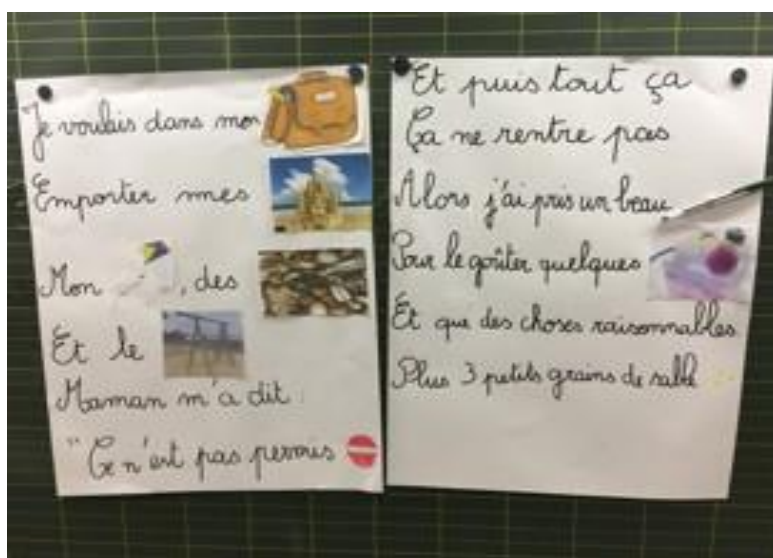 Je voulais dans mon
Emporter mes
Mon , des
Et le
Maman m'a dit :
"Ce n'est pas permis
Et puis tout ça
Ça ne rentre pas
Alors j'ai pris un beau
Pour le goûter quelques
Et que des choses raisonnables
Plus 3 petits grains de sable